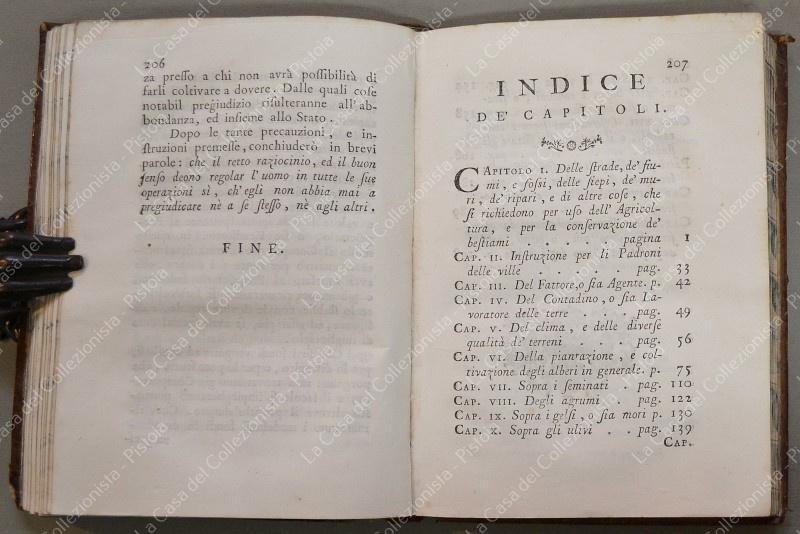 206
za preſſo a chi non avrà poſſibilità di
farli coltivare a dovere. Dalle quali coſe
notabil pregiudizio riſulteranne all'ab-
bondanza, ed inſieme allo Stato.
Dopo le tante precauzioni, e in-
ſtruzioni premeſſe, conchiuderò in brevi
parole: che il retto raziocinio, ed il buon
ſenſo deono regolar l'uomo in tutte le ſue
operazioni sì, ch'egli non abbia mai a
pregiudicare nè a ſe ſteſſo, nè agli altri.
FINE.
207
INDICE
DE' CAPITOLI.
CAPITOLO I. Delle ſtrade, de' fiu-
mi, e foſſi, delle ſiepi, de' mu-
ri, de' ripari, e di altre coſe, che
ſi richiedono per uſo dell' Agricol-
tura, e per la conſervazione de'
beſtiami . . . . pagina 1
CAP. II. Inſtruzione per li Padroni
delle ville . . . . . pag. 33
CAP. III. Del Fattore, o ſia Agente. p. 42
CAP. IV. Del Contadino, o ſia La-
voratore delle terre . . . pag. 49
CAP. V. Del clima, e delle diverſe
qualità de' terreni . . . pag. 56
CAP. VI. Della piantazione, e col-
tivazione degli alberi in generale. p. 75
CAP. VII. Sopra i ſeminati . pag. 110
CAP. VIII. Degli agrumi . pag. 122
CAP. IX. Sopra i gelſi, o ſia mori p. 130
CAP. X. Sopra gli ulivi . . pag. 139
CAP.
La Casa del Collezionista - Pistoia